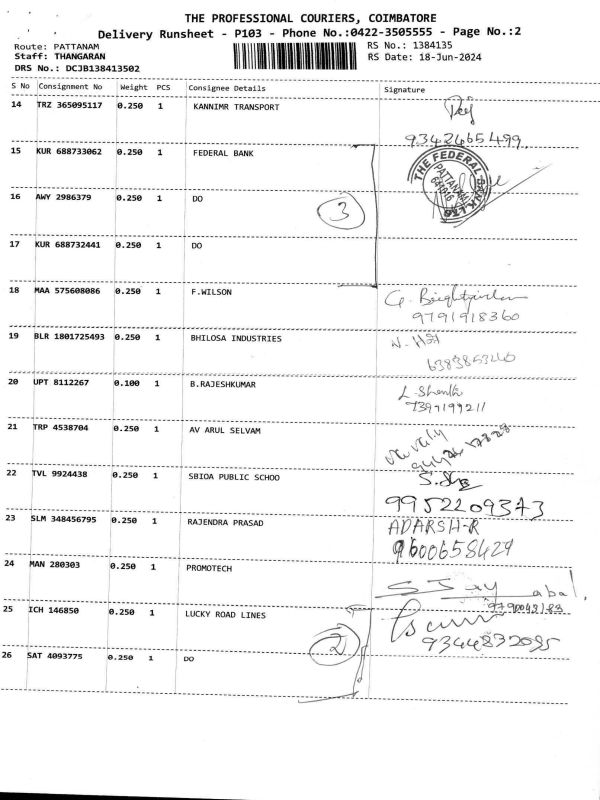 THE PROFESSIONAL COURIERS, COIMBATORE
Delivery Runsheet - P103 - Phone No.:0422-3505555 - Page No.:2
Route: PATTANAM RS No.: 1384135
Staff: THANGARAN RS Date: 18-Jun-2024
DRS No.: DCJB138413502
S No Consignment No Weight PCS Consignee Details Signature
14 TRZ 365095117 0.250 1 KANNIMR TRANSPORT
9342465499
15 KUR 688733062 0.250 1 FEDERAL BANK
THE FEDERAL BANK LTD
PATTANAM
16 AWY 2986379 0.250 1 DO
3
17 KUR 688732441 0.250 1 DO
18 MAA 575608086 0.250 1 F.WILSON
9791918360
19 BLR 1801725493 0.250 1 BHILOSA INDUSTRIES
6383853240
20 UPT 8112267 0.100 1 B.RAJESHKUMAR
L. Shanthi
7397199211
21 TRP 4538704 0.250 1 AV ARUL SELVAM
22 TVL 9924438 0.250 1 SBIOA PUBLIC SCHOO
9952209343
23 SLM 348456795 0.250 1 RAJENDRA PRASAD ADARSH-R
9600658429
24 MAN 280303 0.250 1 PROMOTECH
25 ICH 146850 0.250 1 LUCKY ROAD LINES
9344832095
2
26 SAT 4093775 0.250 1 DO